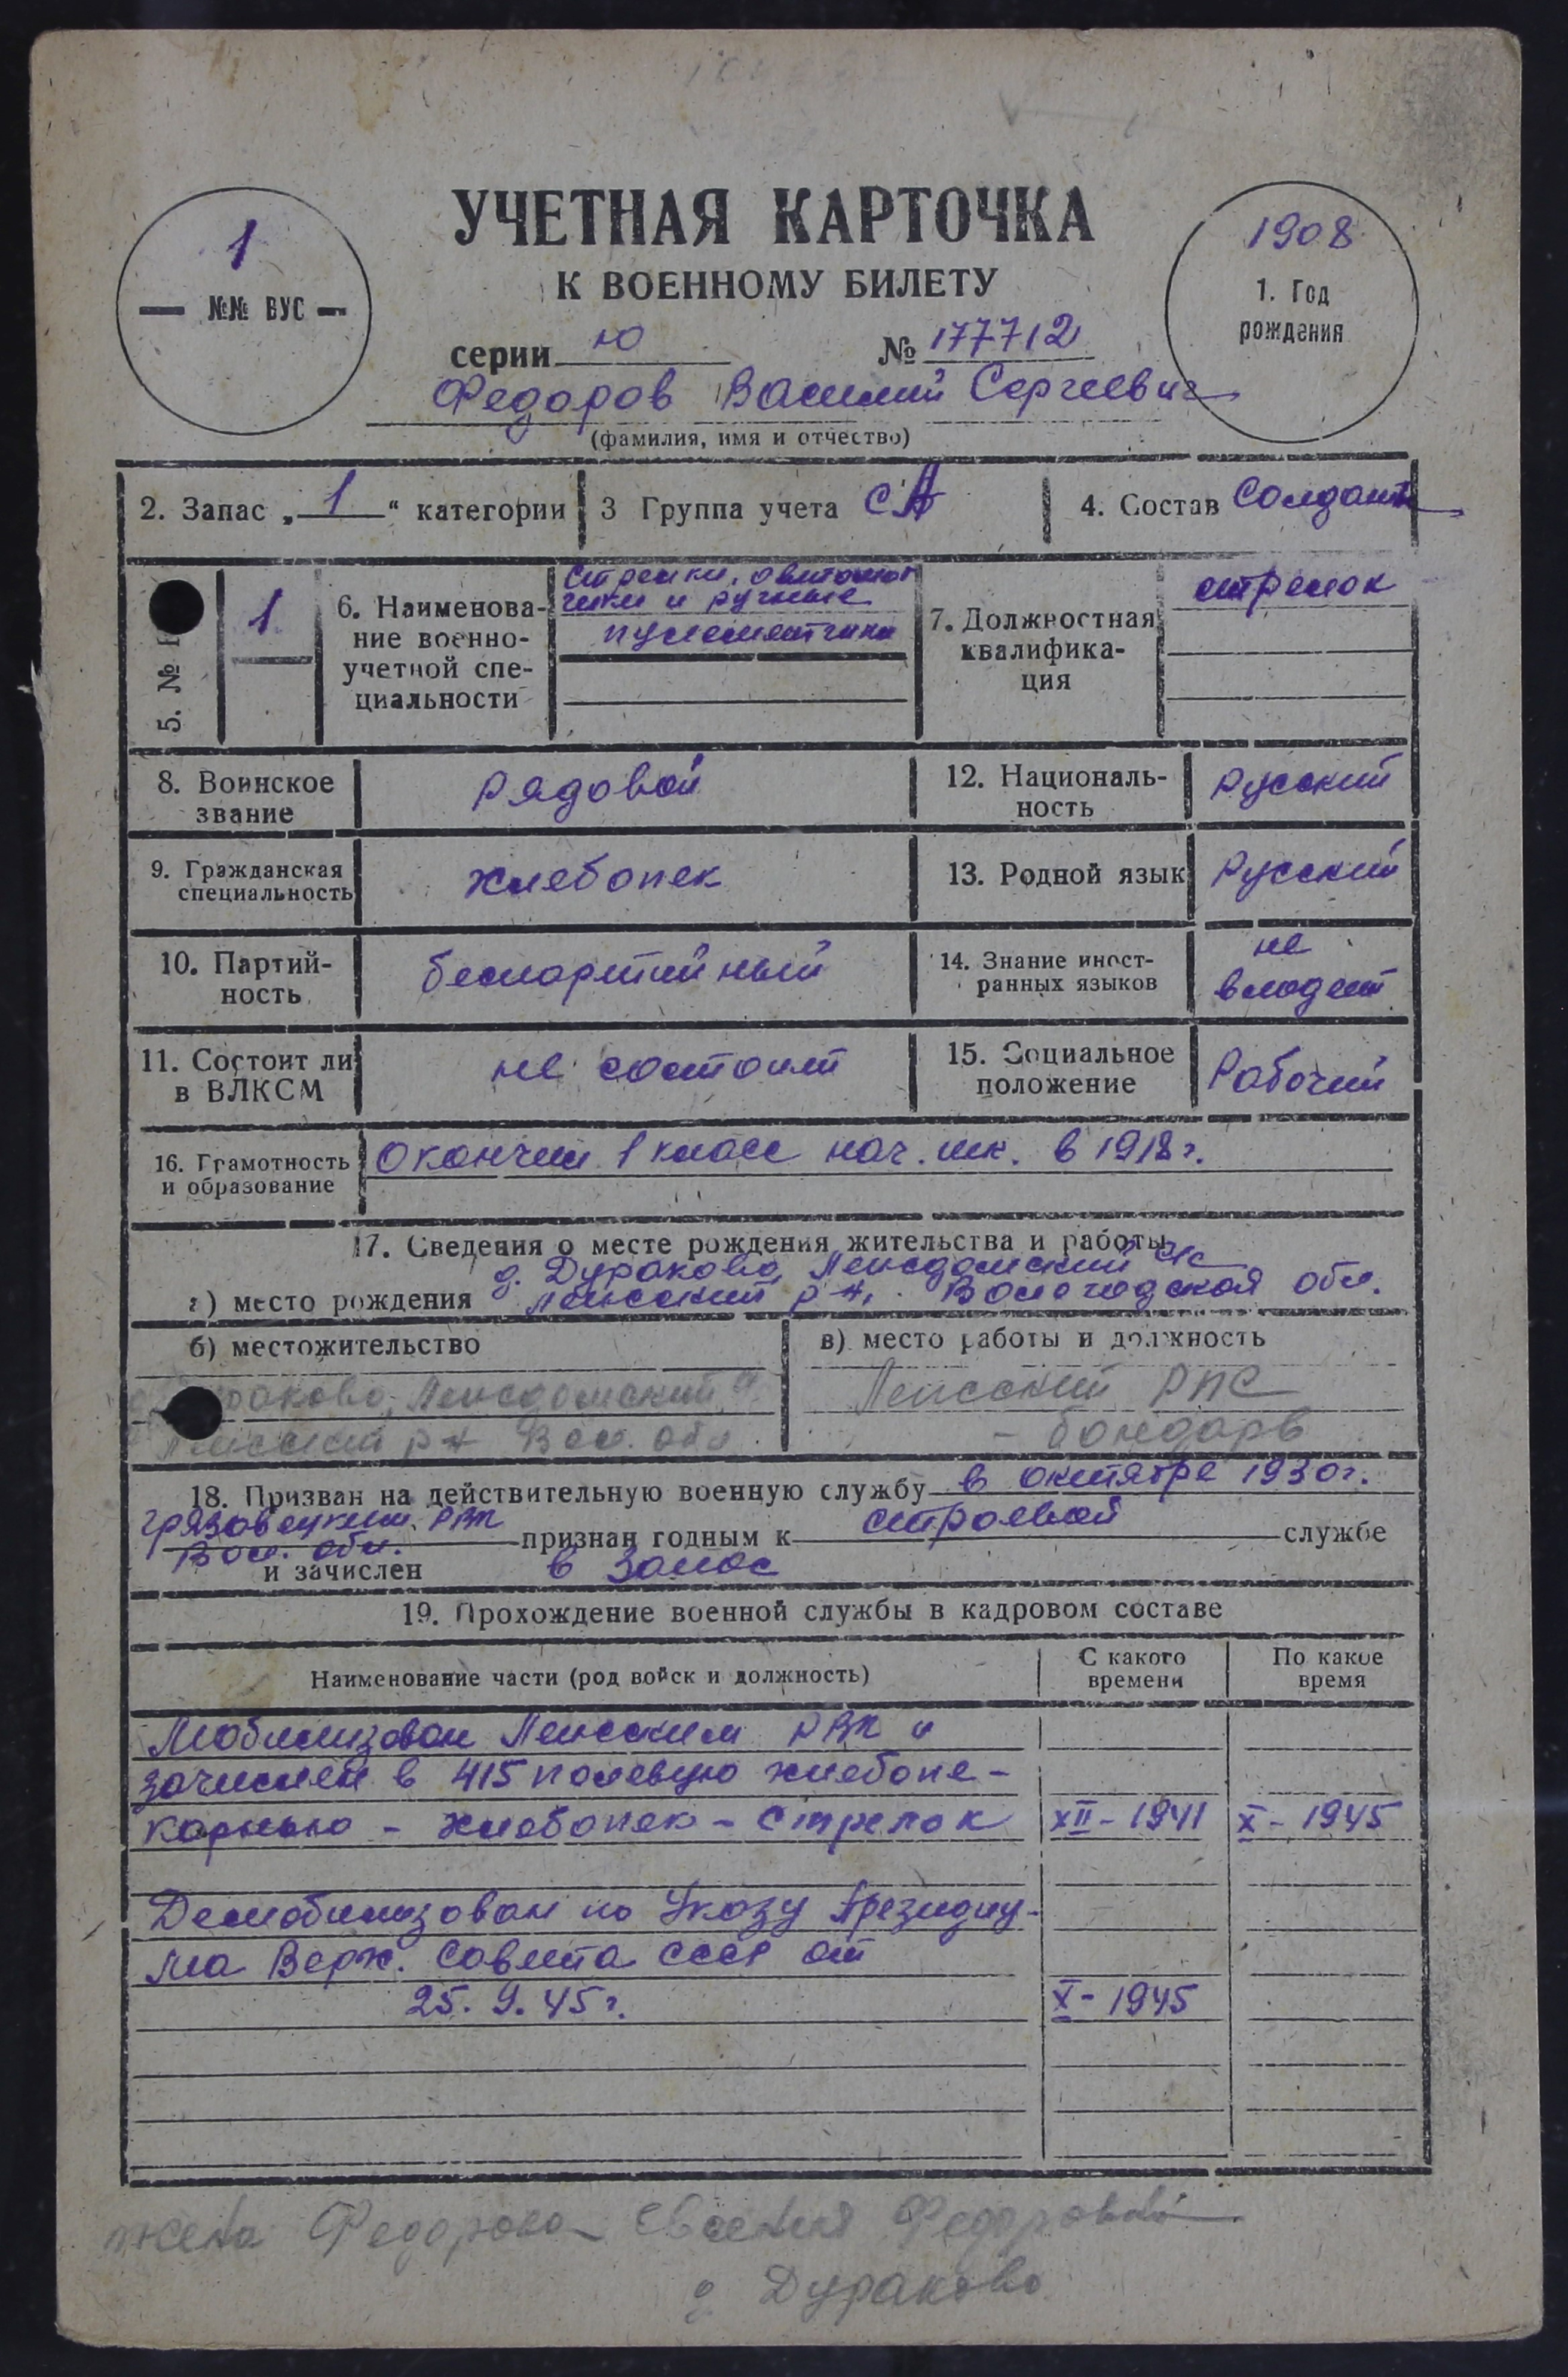 УЧЕТНАЯ КАРТОЧКА
К ВОЕННОМУ БИЛЕТУ
1
№№ ВУС
1908
1. Год
рождения
серии Ю № 177712
Федоров Василий Сергеевич
(фамилия, имя и отчество)
2. Запас „1“ категории
3 Группа учета СА
4. Состав Солдат
5. №
1
6. Наименова-
ние военно-
учетной спе-
циальности
Стрелки, автомат
чики и ручные
пулеметчики
7. Должностная
квалифика-
ция
стрелок
8. Воинское
звание
рядовой
12. Националь-
ность
Русский
9. Гражданская
специальность
хлебопек
13. Родной язык
Русский
10. Партий-
ность
беспартийный
14. Знание иност-
ранных языков
не
владеет
11. Состоит ли
в ВЛКСМ
не состоит
15. Социальное
положение
Рабочий
16. Грамотность
и образование
Окончил 1 класс нач. шк. в 1918 г.
17. Сведения о месте рождения жительства и работы
д. Дураково, с/с
а) место рождения р-н, Вологодской обл.
б) местожительство
раково,
р-н Вол. обл
в) место работы и должность
РПС
- бондарь
18. Призван на действительную военную службу в октябре 1930г.
Грязовецким РВК
Вол. обл. признан годным к строевой службе
и зачислен в запас
19. Прохождение военной службы в кадровом составе
Наименование части (род войск и должность)
С какого
времени
По какое
время
Мобилизован РВК и
зачислен в 415 полевую хлебопе-
карнью - хлебопек - стрелок XII - 1941 X - 1945
Демобилизован по Указу Президиу-
ма Верх. Совета СССР от
25. 9. 45 г. X - 1945
жена Федорова Федоровна
д Дураково